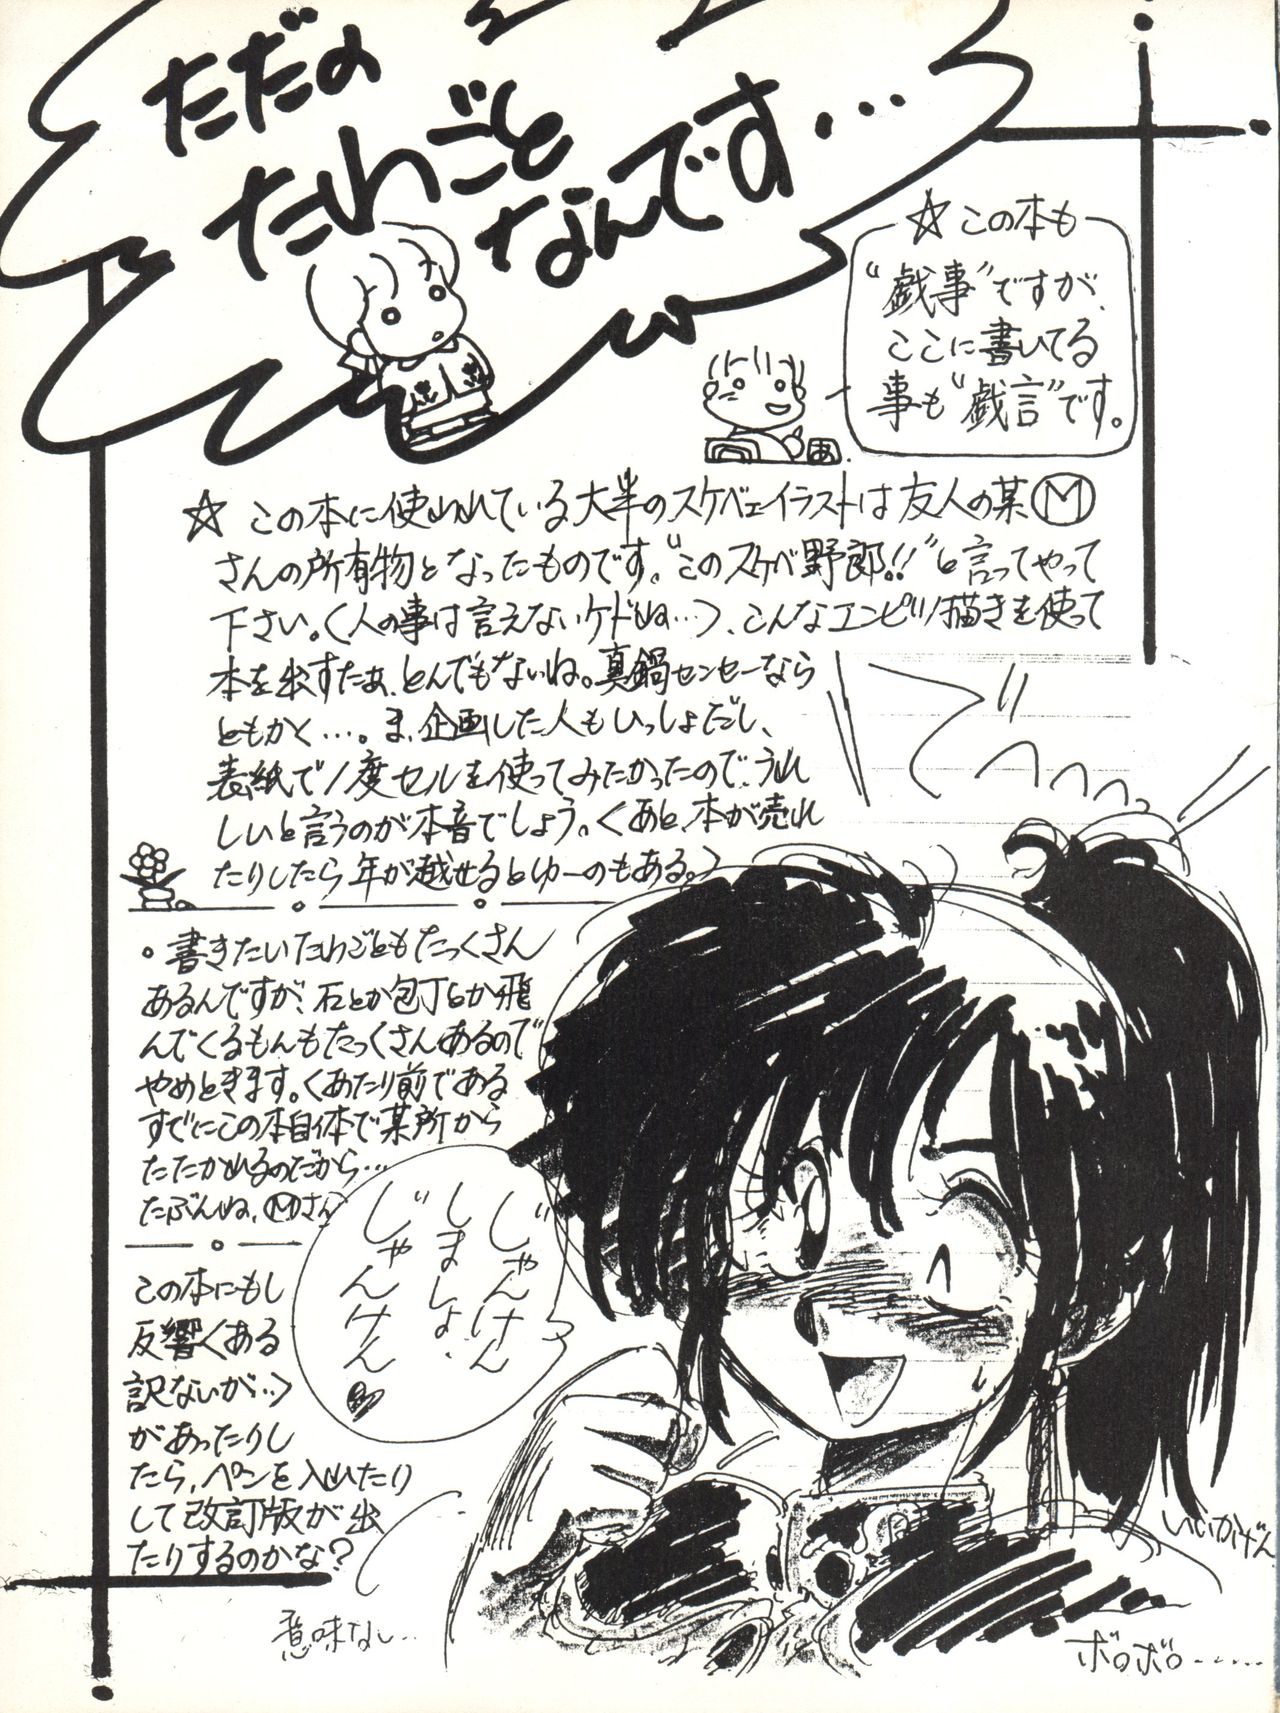 ただの
たわごと
なんです…
☆この本も
“戯事”ですが、
ここに書いてる
事も“戯言”です。
あ
☆この本に使われている大半のスケベェイラストは友人の某Ⓜ
さんの所有物となったものです。“このスケベ野郎!!”と言ってやって
下さい。〈人の事は言えないケドね…〉、こんなエンピツ描きを使って
本を出すたぁ、とんでもないね。真鍋センセーなら
ともかく…。ま、企画した人もいっしょだし、
表紙で1度セルを使ってみたかったので、うれ
しいと言うのが本音でしょう。〈あと、本が売れ
たりしたら年が越せるとゆーのもある。〉
。書きたいたわごともたっくさん
あるんですが、石とか包丁とか飛
んでくるもんもたっくさんあるので
やめときます。〈あたり前である
すでにこの本自体で某所から
たたかれるのだから…
たぶんね、Ⓜさん
この本にもし
反響くある
訳ないが…〉
があったりし
たら、ペンを入れたり
して改訂版が出
たりするのかな?
じゃんけん
しましょ、
じゃんけん♥
意味なし…
いいかげん
ボロボロ……